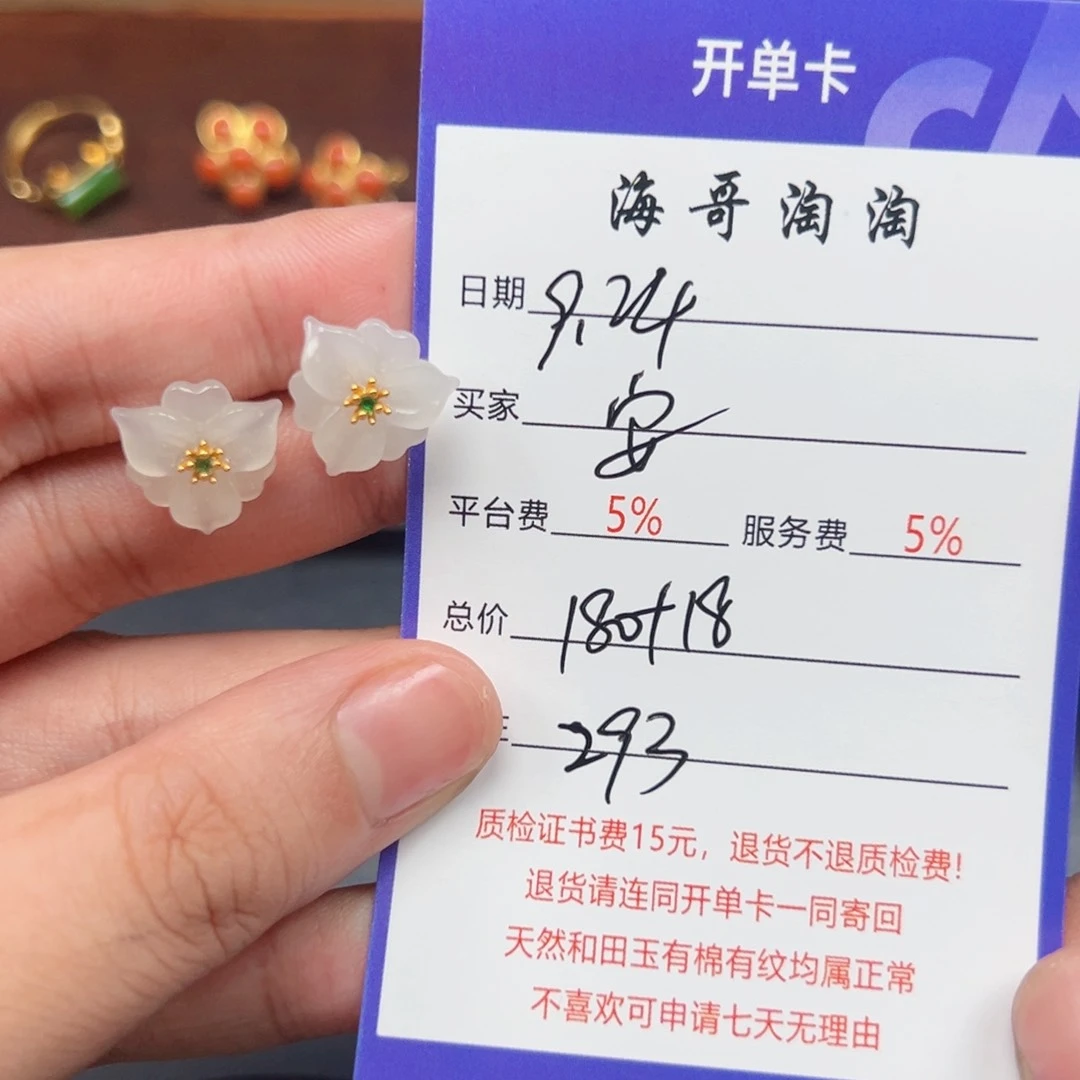 开单卡
海哥淘淘
日期 9.24
买家 安
平台费 5% 服务费 5%
总价 180+18
293
质检证书费15元，退货不退质检费!
退货请连同开单卡一同寄回
天然和田玉有棉有纹均属正常
不喜欢可申请七天无理由